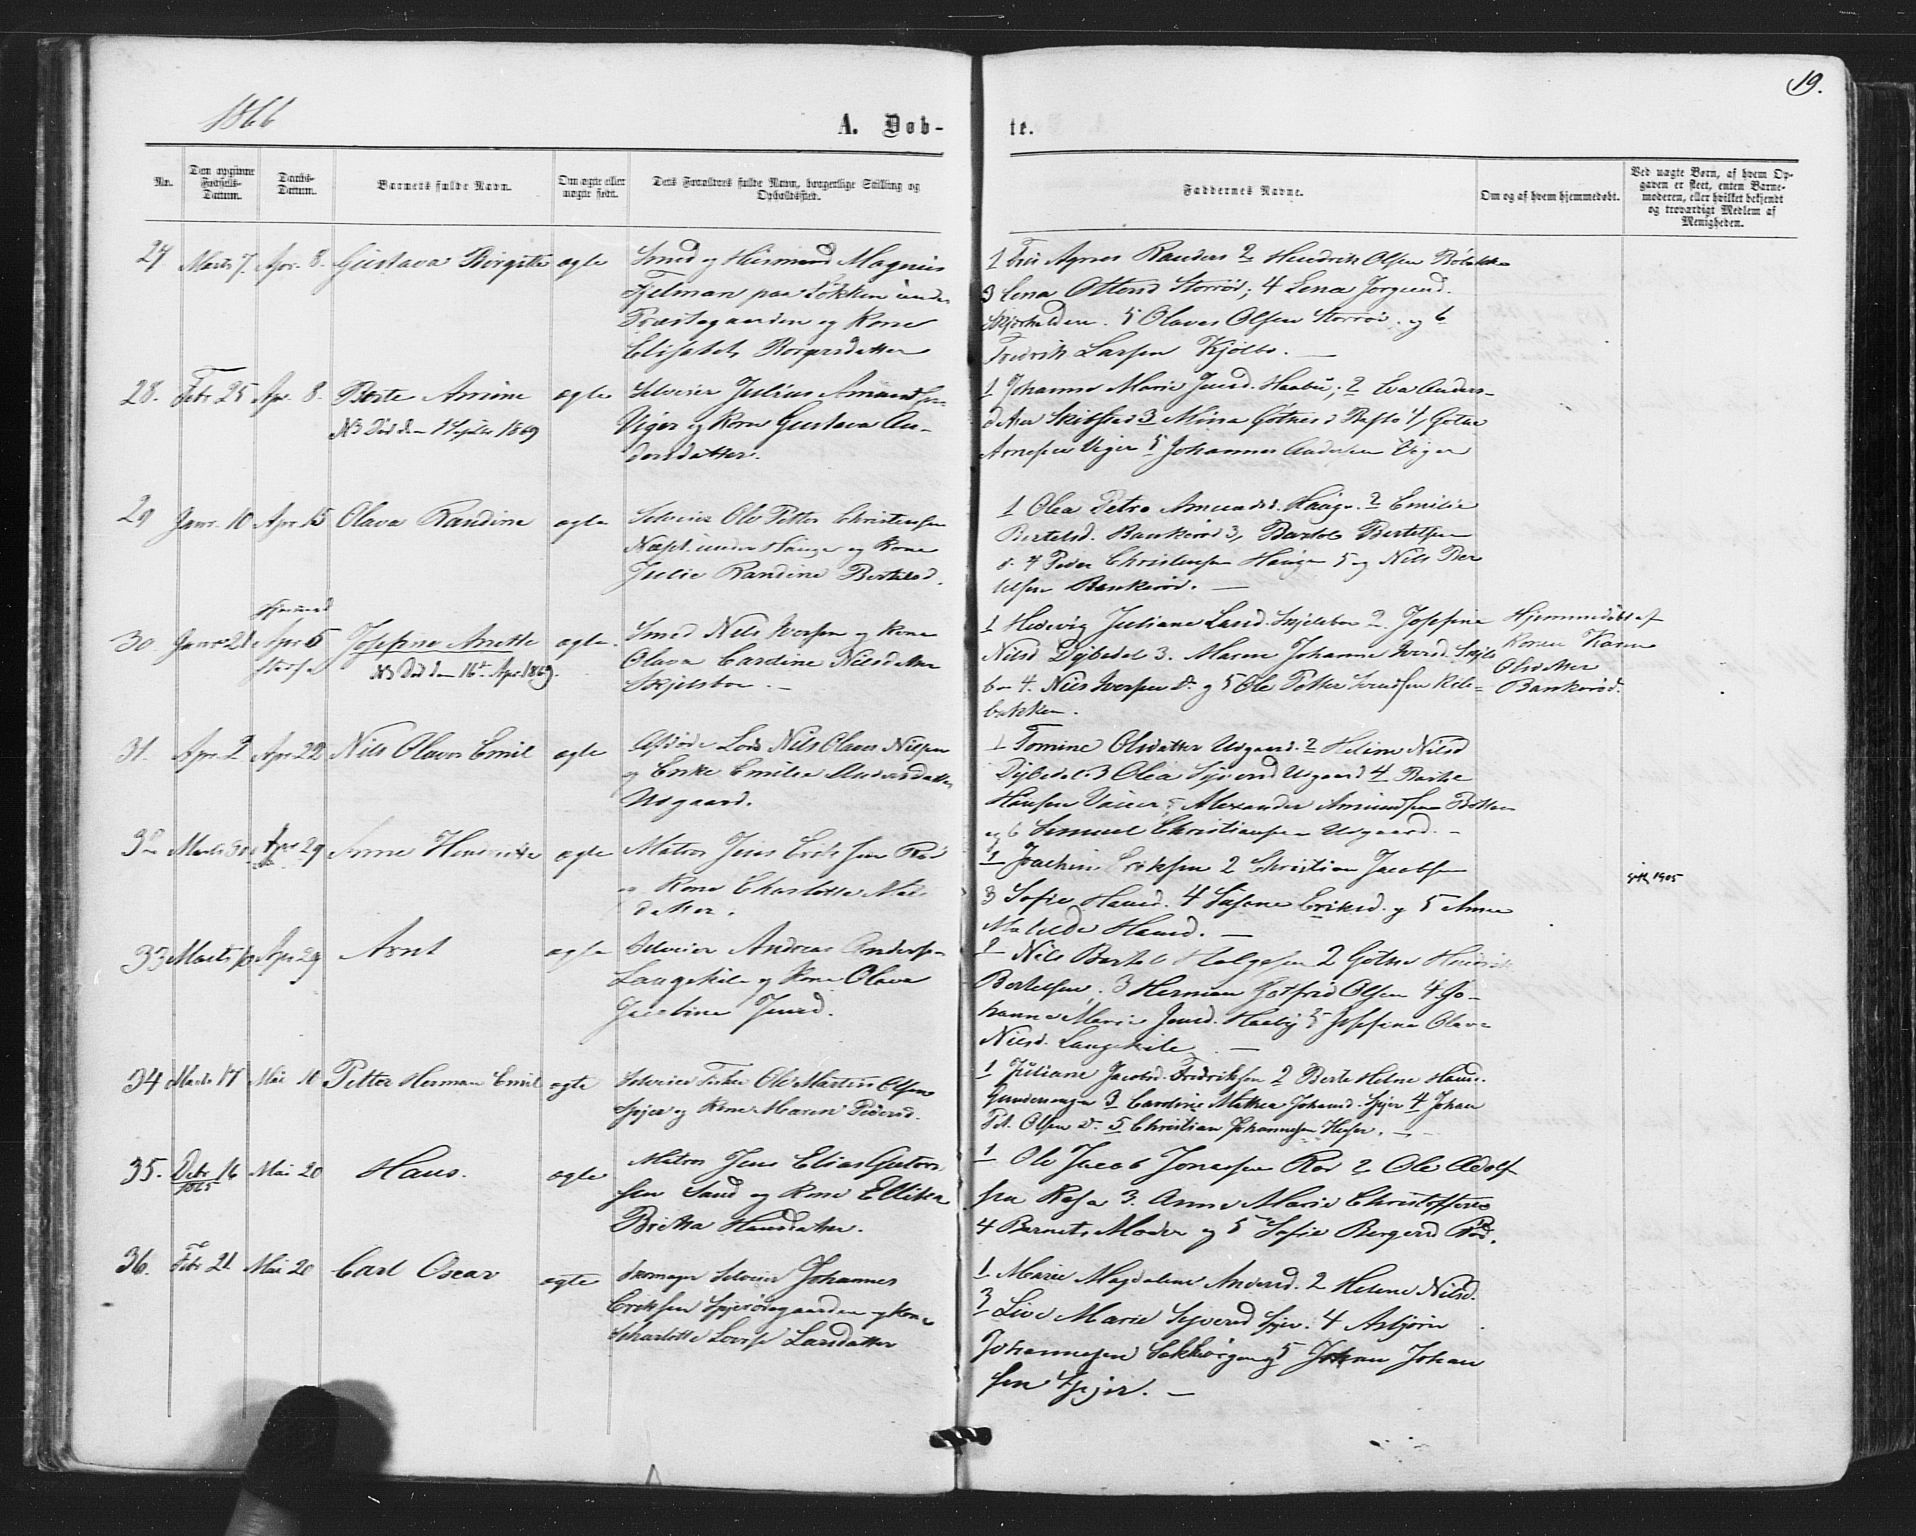 1866
A. Døb-
te.
19.
Nr.
Den opgivne Fødsels-Datum.
Daabs-Datum.
Barnets fulde Navn.
Om ægte eller uægte født.
Dets Forældres fulde Navn, borgerlige Stilling og Opholdssted.
Faddernes Navne.
Om og af hvem hjemmedøbt.
Ved uægte Børn, af hvem Opgaven er skeet, enten Barnemoderen, eller hvilket bekjendt og troværdigt Medlem af Menigheden.
27 Marts 7. Apr. 8. Gustava Birgitte ægte
Smed og Huusmand Magnus
Fjelman paa Løkken under
Præstegaarden og Kone
Elisabeth Borgersdatter
1 Agnes Randers 2 Hendrik Olsen
3 Lena Ottersd Storrød; 4 Lena Jørgensd.
Skjærhalden. 5 Olaves Olsen Storrød. og 6
Fredrik Larsen Kjølbo. —
28. Febr 25 Apr. 8. Berte Amine ægte
NB Død d. 1 Septbr 1869
Selveier Julius Amundsen
Viger og Kone Gustava An-
dersdatter.
1 Johanne Marie Jensd. Haabu; 2 Eva Anders-
datter Skibstad 3 Mina Gøthesd Bastø 4 Gøthe
Arnesen Viger 5 Johannes Andersen Viger
29 Janr. 10 Apr. 15 Olava Randine ægte
Selveier Ole Petter Christensen
under Hauge og Kone
Julie Randine Bertelsd.
1 Olea Petra Amundsd. Hauge. 2 Emilie
Bertelsd. Bankerød 3, Bertelsen
4 Peder Christensen Hauge 5 og Nils Ber
telsen Bankerød. —
30. Janr 21 Apr 5 Josefine Anette ægte.
NB Død den 16de Apr. 1869.
Smed Nils Iversen og Kone
Olava Cardine Nilsdatter
Skjelsboe. —
1 Hedevig Juliane Larsd. Skjelsbo 2. Josefine
Nilsd Dybedal 3. Maren Johanne Iversd. Skjels
bo 4. Nils Iversen Do. og 5 Ole Petter
bakken.
Hjemmedøbt af
Konen Karen
Olsdatter
Bankerød.
31. Apr. 2 Apr 22 Nils Olavus Emil ægte
Afdøde Lods Nils Olaves Nilsen
og Enke Emilie Andersdatter
Udgaard.
1 Tomine Olsdatter Udgaard. 2 Helene Nilsd
Dybedal 3 Olea Udgaard 4 Berthe
Hansen 5 Alexander Amundsen
og 6 Semuel Christiansen Udgaard. —
32 Marts 30 Apr 29 Anne Hendrikke ægte
Matros Jens Eriksen Rød
og Kone Charlotte
datter.
1 Joachim Eriksen 2 Christian Jacobsen
3 Sofie Hansd. 4 Susane Eriksd. og 5 Anne
Matilde Hansd. —
1905
33 Marts Apr 29 Arnt ægte
Selveier Andreas Anders-
Langekile og Kone Olava
Jacobine Jensd.
1 Nils Bertel Helgesen 2 Gøthe Hendrik
Bertelsen, 3 Herman Gotfrid Olsen 4. Jo-
hanne Marie Jensd. Haaby 5 Josefine Olava
Nilsd. Langekile —
34 Marts 17 Mai 10 Petter Herman Emil ægte
Selveier Fisker Ole Martin Olsen
Spjær og Kone Maren Pedersd.
1 Juliane Jacobsd. Fredriksen 2 Berte Helene Hansd.
3 Cardine Mathea Johansd. Spjær 4 Johan
Pet. Olsen Do. 5 Christian Johannesen Huser. —
35. Debr 16 1865 Mai 20 Hans. ægte
Matros Jens Elias Gutorm
sen Sand og Kone Ellika
Britta Hansdatter.
1 Ole Jacob Jonassen Rød 2 Ole Adolf
sen Rød 3. Anne Marie Christoffersd
4 Barnets Moder og 5 Sofie Bergersd Rød.
36. Febr 21 Mai 20 Carl Oscar ægte
Skomager Selveier Johannes
Eriksen Spjærødegaarden og Kone
Scharlotte Lovise Larsdatter
1 Marie Magdalene Andersd. 2 Helene Nilsd.
3 Live Marie Syversd Spjær. 4 Asbjørn
Johannesen og 5 Johan Johan
sen Spjær. —